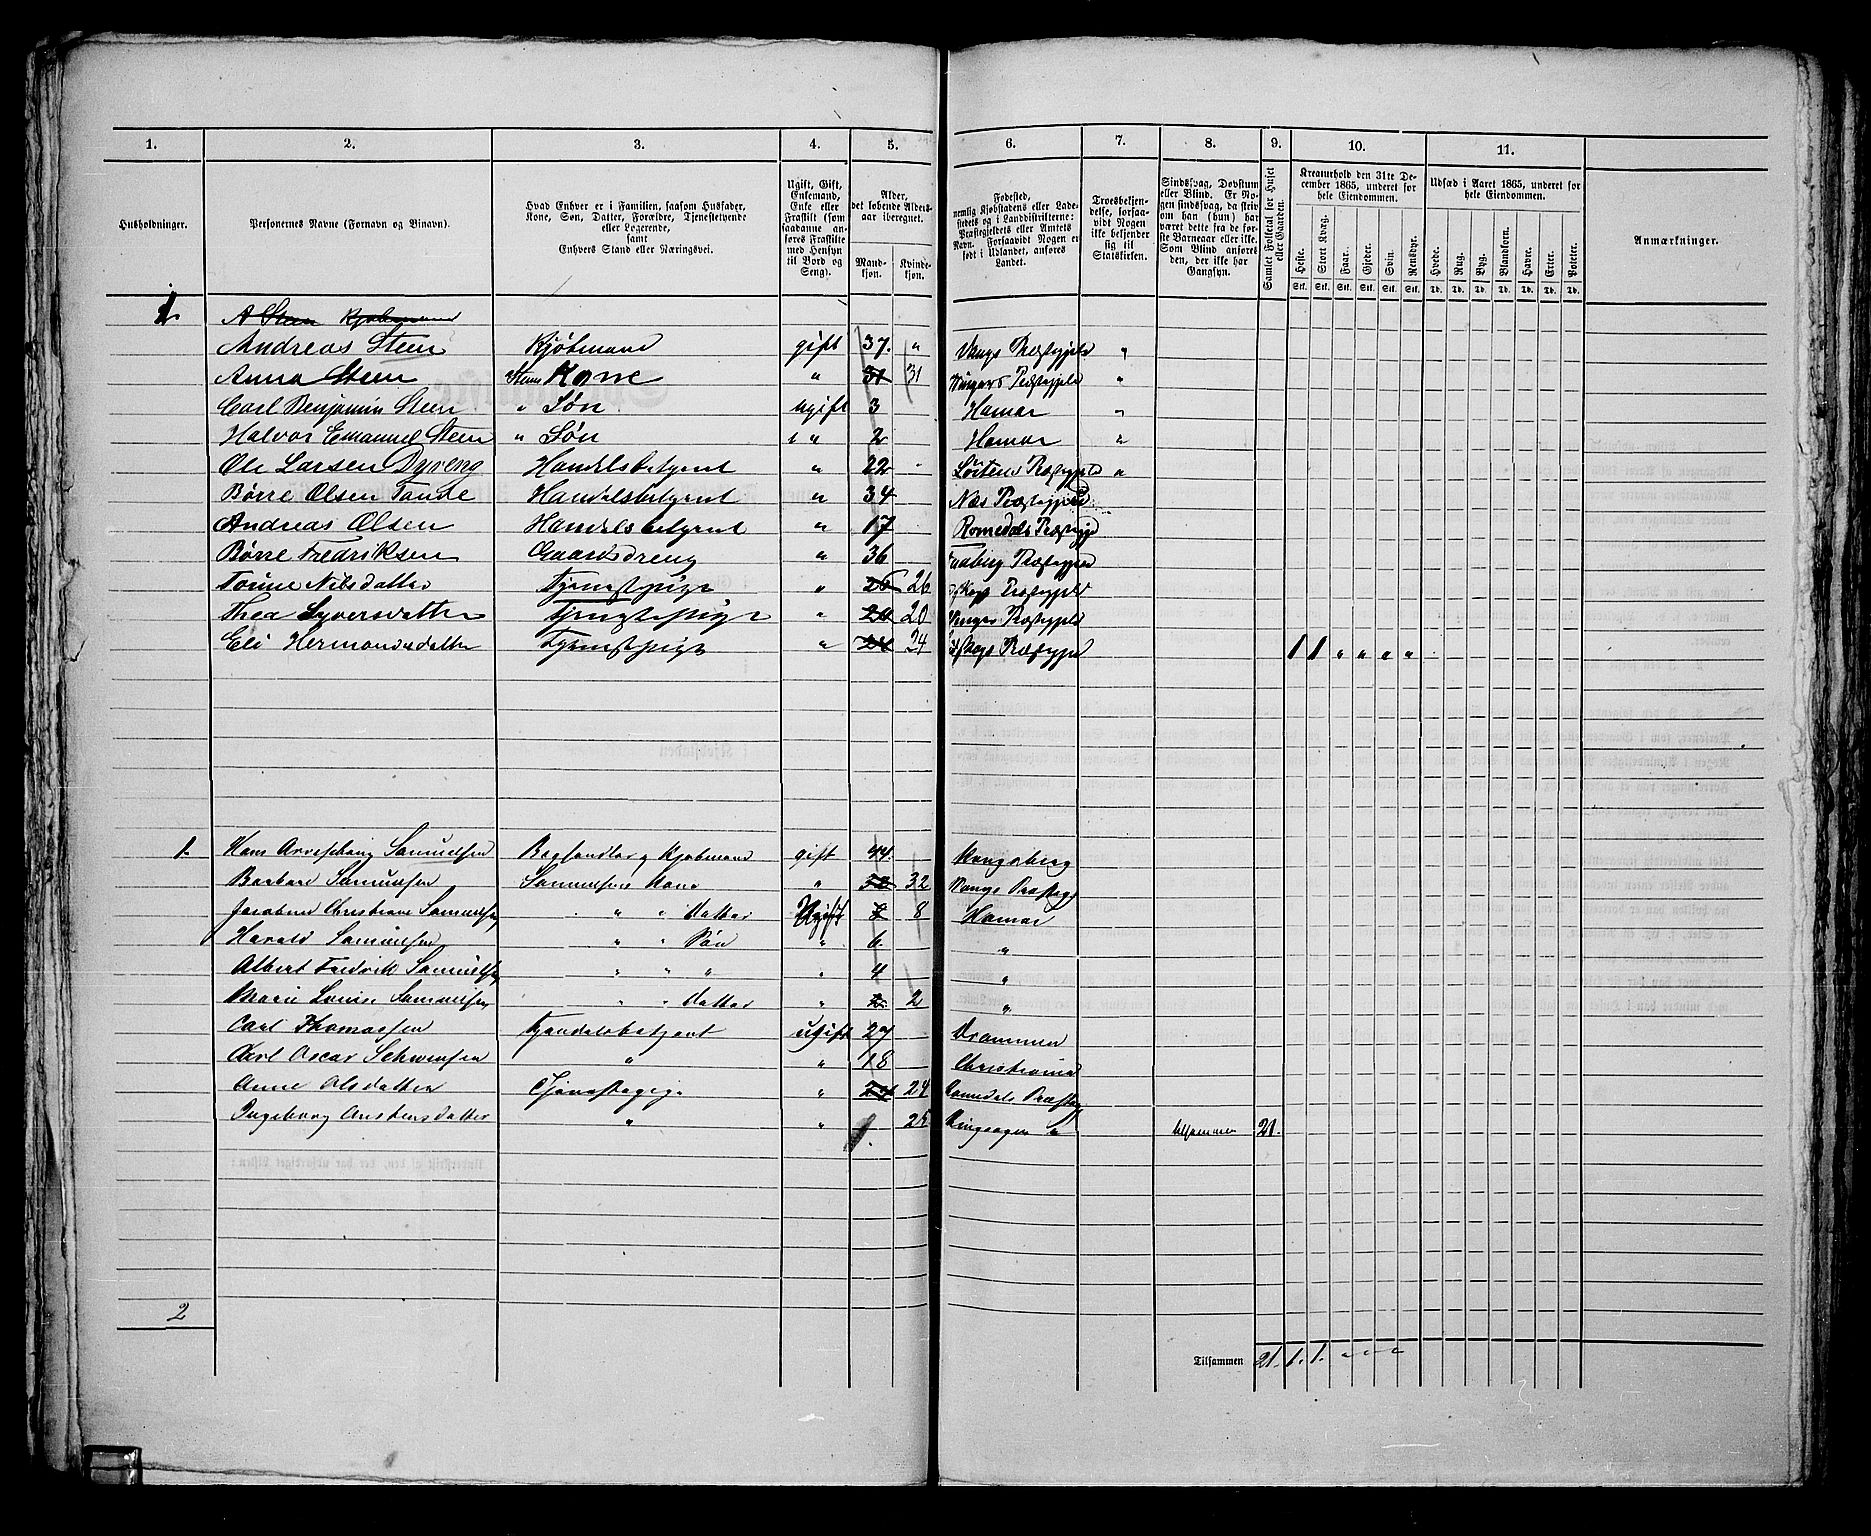 1. 2. 3. 4. 5. 6. 7. 8. 9. 10. 11.
Husholdninger.
Personernes Navne (Fornavn og Binavn).
Hvad Enhver er i Familien, saasom Husfader, Kone, Søn, Datter, Forældre, Tjenestetyende eller Logerende, samt Enhvers Stand eller Næringsvei.
Ugift, Gift, Enkemand, Enke eller Fraskilt (som saadanne anføres Fraskilte med Hensyn til Bord og Seng).
Alder, det løbende Alders-aar iberegnet.
Mand-kjøn. Kvinde-kjøn.
Fødested, nemlig Kjøbstadens eller Ladestedets og i Landdistrikterne: Præstegjeldets eller Amtets Navn. Forsaavidt Nogen er født i Udlandet, anføres Landet.
Troesbekjendelse, forsaavidt Nogen ikke bekjender sig til Statskirken.
Sindssvag, Døvstum eller Blind. Er Nogen sindssvag, da skriv om han (hun) har været dette fra de første Barneaar eller ikke. Som Blind anføres den, der ikke har Gangsyn.
Samlet Folketal for Huset eller Gaarden.
Kreaturhold den 31te December 1865, underet for hele Eiendommen.
Heste. Stort Kvæg. Faar. Gjeder. Svin. Rensdyr.
Stk. Stk. Stk. Stk. Stk. Stk.
Udsæd i Aaret 1865, underet for hele Eiendommen.
Hvede. Rug. Byg. Blandkorn. Havre. Erter. Poteter.
Td. Td. Td. Td. Td. Td. Td.
Anmærkninger.
1. A Steen Kjøbmand
Andreas Steen Kjøbmand gift 37. " Vangs Præstegjeld "
Anna Steen Steens Kone " 31 31 Præstegjeld "
Carl Benjamin Steen " Søn ugift 3 Hamar "
Halvor Emanuel Steen " Søn " 2 Hamar "
Ole Larsen Dyreng Handelsbetjent " 22 Løiten Præstegjeld "
Børre Olsen Tande Handelsbetjent " 34 Næs Præstegjeld
Andreas Olsen Handelsbetjent " 17 Romedals Præstegjd
Børre Fredriksen Gaardsdreng " 36 Faaberg Præstegjeld
Nilsdatter Tjenestpige " 26 26 Præstegjeld
Thea Syversdatter Tjenestepige " 20 20 Præstegjeld
Eli Hermansdatter Tjenestpige " 24 24 Præstegjeld 1 1 " " " "
1. Hans Samuelsen Boghandler og Kjøbmand gift 44. Kongsberg
Barbara Samuelsen Samuelsens Kone " 32 32 Vangs Præstegj
Jacobine Christiane Samuelsen " " Datter Ugift 8 8 Hamar
Harald Samuelsen " " Søn " 6 "
Albert Fredrik Samuelsen " " " " 4 "
Marie Louise Samuelsen " " Datter " 2 2 "
Carl Thomassen Handelsbetjent ugift 27 Drammen
Carl Oscar Schwensen " " 18 Christiania
Anne Olsdatter Tjenestepige " 24 24 Romedals Præsteg
Ingeborg Austensdatter " " 25 Ringsager " tilsammen 21.
2
Tilsammen 21. 1. 1. " " "